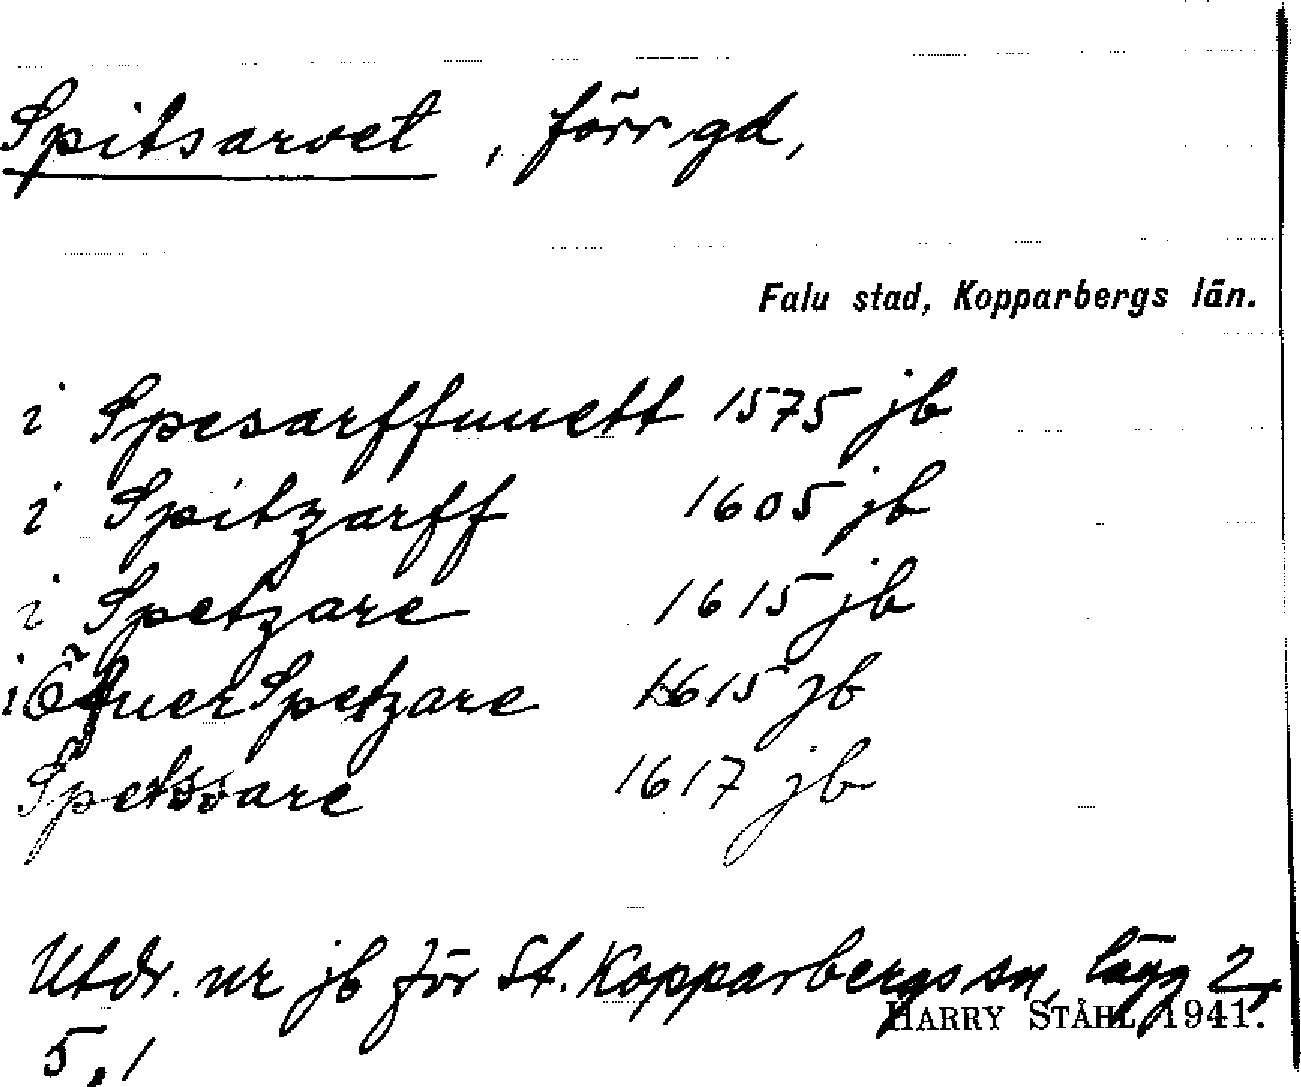 Spitsarvet, förr gd,
Falu stad, Kopparbergs län.
i Spesarffuuett 1575 jb
i Spitzarff 1605 jb
i Spetzare 1615 jb
i Öfuer Spetzare 1615 jb
Spetssare 1617 jb
Utdr. ur jb för St. Kopparbergs sn, lägg 2,
HARRY STÅHL 1941.
5, 1